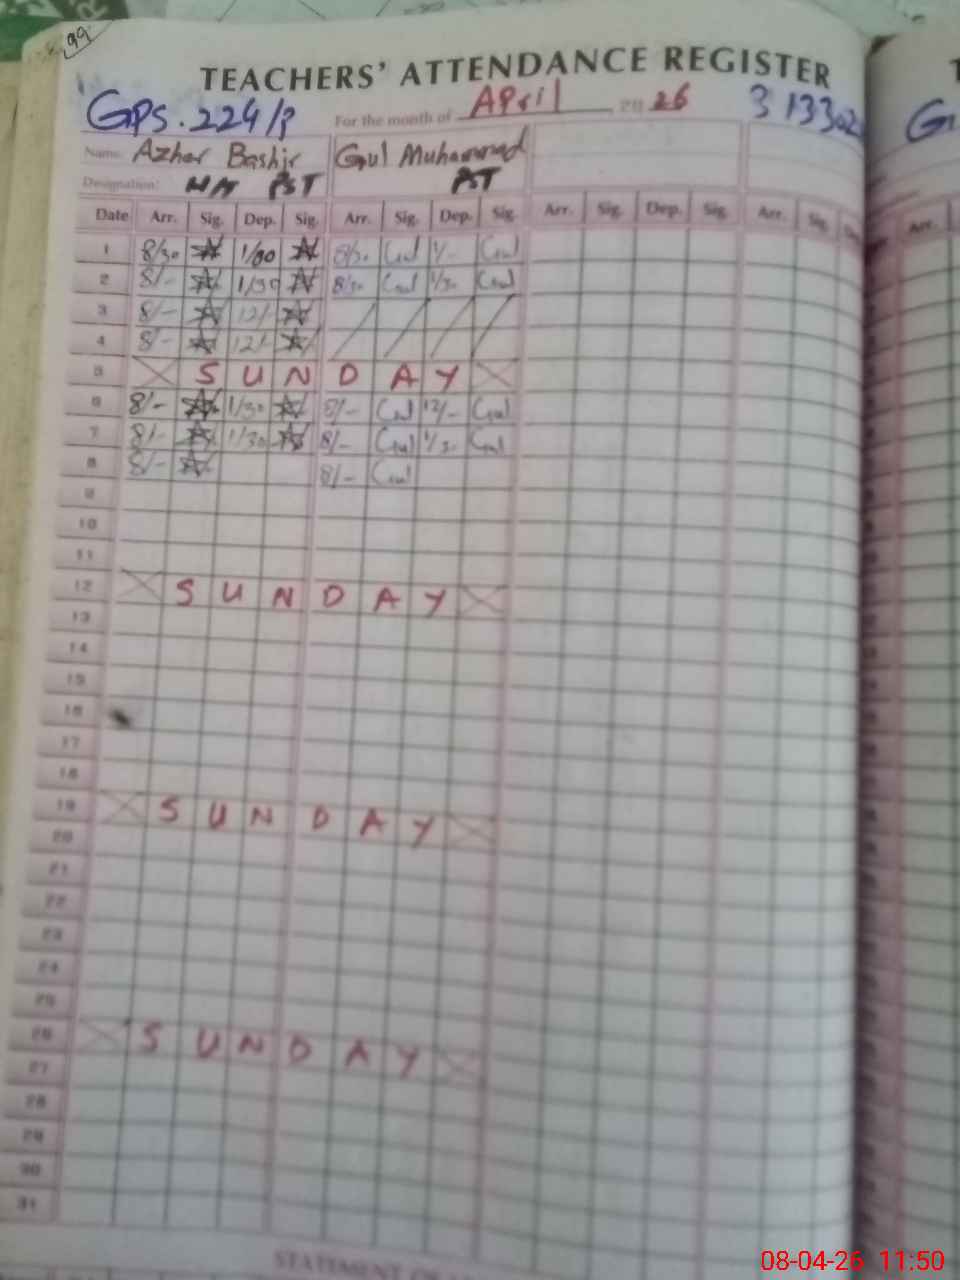 99
TEACHERS' ATTENDANCE REGISTER
GPS. 224/P For the month of April 20 26 31330
Name: Azhar Bashir Gul Muhammad
Designation: PST PST
Date Arr. Sig. Dep. Sig. Arr. Sig. Dep. Sig. Arr. Sig. Dep. Sig. Arr. Sig. Arr.
1 8/30 1/00 8/30 Gul 1/- Gul
2 8/- 1/30 8/30 Gul 1/30 Gul
3 8/- 12/
4 8/- 12/
5 SUNDAY
6 8/- 1/30 8/- Gul 12/- Gul
7 8/- 1/30 8/- Gul 1/30 Gul
8 8/- 8/- Gul
9
10
11
12 SUNDAY
13
14
15
16
17
18
19 SUNDAY
20
21
22
23
24
25
26 SUNDAY
27
28
29
30
31
STATEMENT
08-04-26 11:50